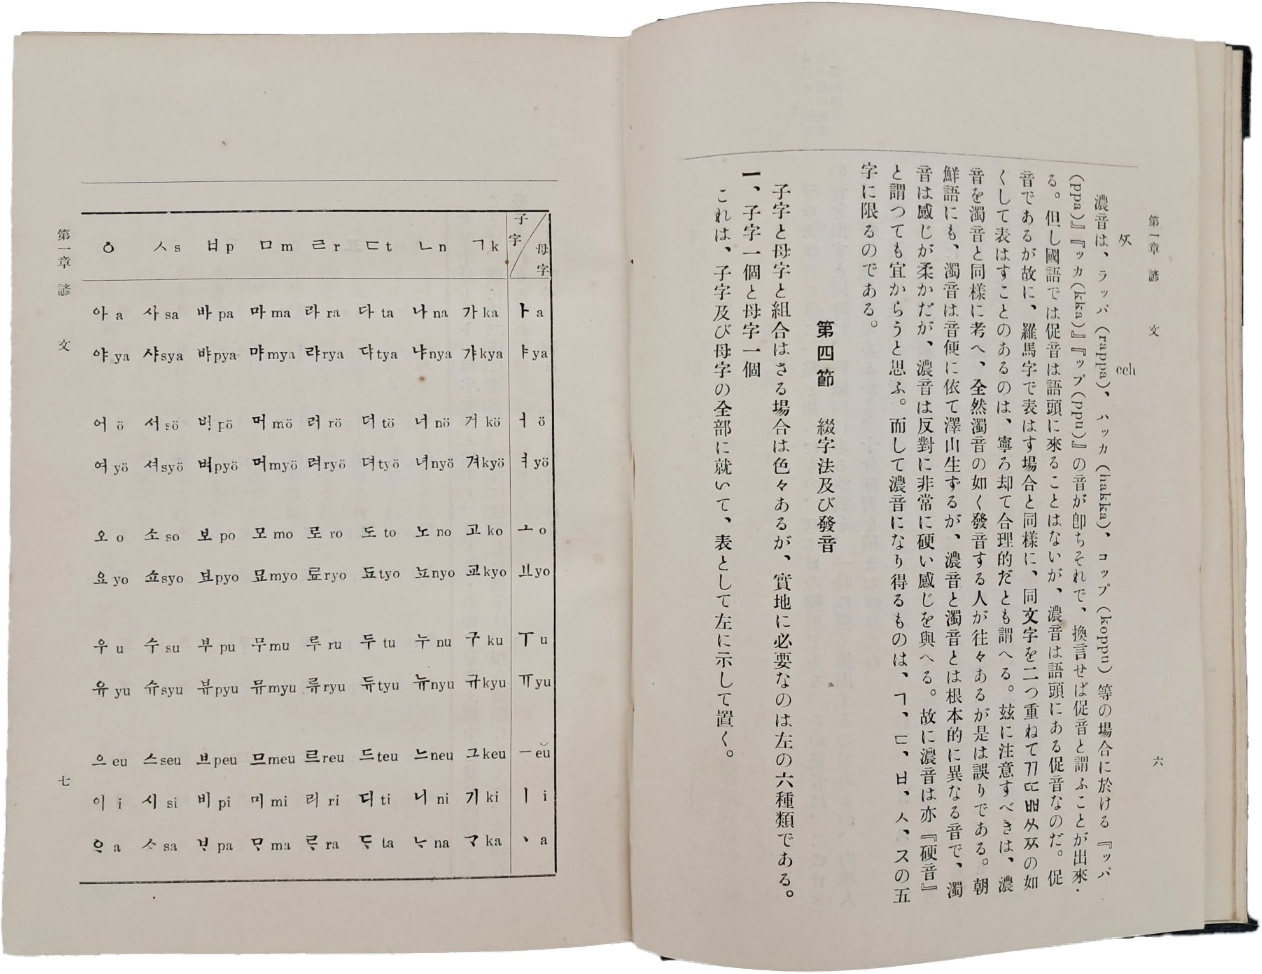 第一章 諺 文
六
ㅉ cch
濃音は、ラッパ(rappa)、ハッカ(hakka)、コップ(koppu)等の場合に於ける『ッパ
(ppa)』『ッカ(kka)』『ップ(ppu)』の音が卽ちそれで、換言せば促音と謂ふことが出來
る。但し國語では促音は語頭に來ることはないが、濃音は語頭にある促音なのだ。促
音であるが故に、羅馬字で表はす場合と同樣に、同文字を二つ重ねてㄲㄸㅃㅆㅉの如
くして表はすことのあるのは、寧ろ却て合理的だとも謂へる。玆に注意すべきは、濃
音を濁音と同樣に考へ、全然濁音の如く發音する人が往々あるが是は誤りである。朝
鮮語にも、濁音は音便に依て澤山生ずるが、濃音と濁音とは根本的に異なる音で、濁
音は感じが柔かだが、濃音は反對に非常に硬い感じを與へる。故に濃音は亦『硬音』
と謂つても宜からうと思ふ。而して濃音になり得るものは、ㄱ、ㄷ、ㅂ、ㅅ、ㅈの五
字に限るのである。
第四節 綴字法及び發音
子字と母字と組合はさる場合は色々あるが、實地に必要なのは左の六種類である。
一、子字一個と母字一個
これは、子字及び母字の全部に就いて、表として左に示して置く。
第一章 諺 文
七
ㅇ ㅅs ㅂp ㅁm ㄹr ㄷt ㄴn ㄱk 子字 母字
아a 사sa 바pa 마ma 라ra 다ta 나na 가ka ㅏa
야ya 샤sya 뱌pya 먀mya 랴rya 댜tya 냐nya 갸kya ㅑya
어ö 서sö 버pö 머mö 러rö 더tö 너nö 거kö ㅓö
여yö 셔syö 벼pyö 며myö 려ryö 뎌työ 녀nyö 겨kyö ㅕyö
오o 소so 보po 모mo 로ro 도to 노no 고ko ㅗo
요yo 쇼syo 뵤pyo 묘myo 료ryo 됴tyo 뇨nyo 교kyo ㅛyo
우u 수su 부pu 무mu 루ru 두tu 누nu 구ku ㅜu
유yu 슈syu 뷰pyu 뮤myu 류ryu 듀tyu 뉴nyu 규kyu ㅠyu
으eu 스seu 브peu 므meu 르reu 드teu 느neu 그keu ㅡeŭ
이i 시si 비pi 미mi 리ri 디ti 니ni 기ki ㅣi
ᄋᆞa ᄉᆞsa ᄇᆞpa ᄆᆞma ᄅᆞra ᄃᆞta ᄂᆞna ᄀᆞka ㆍa